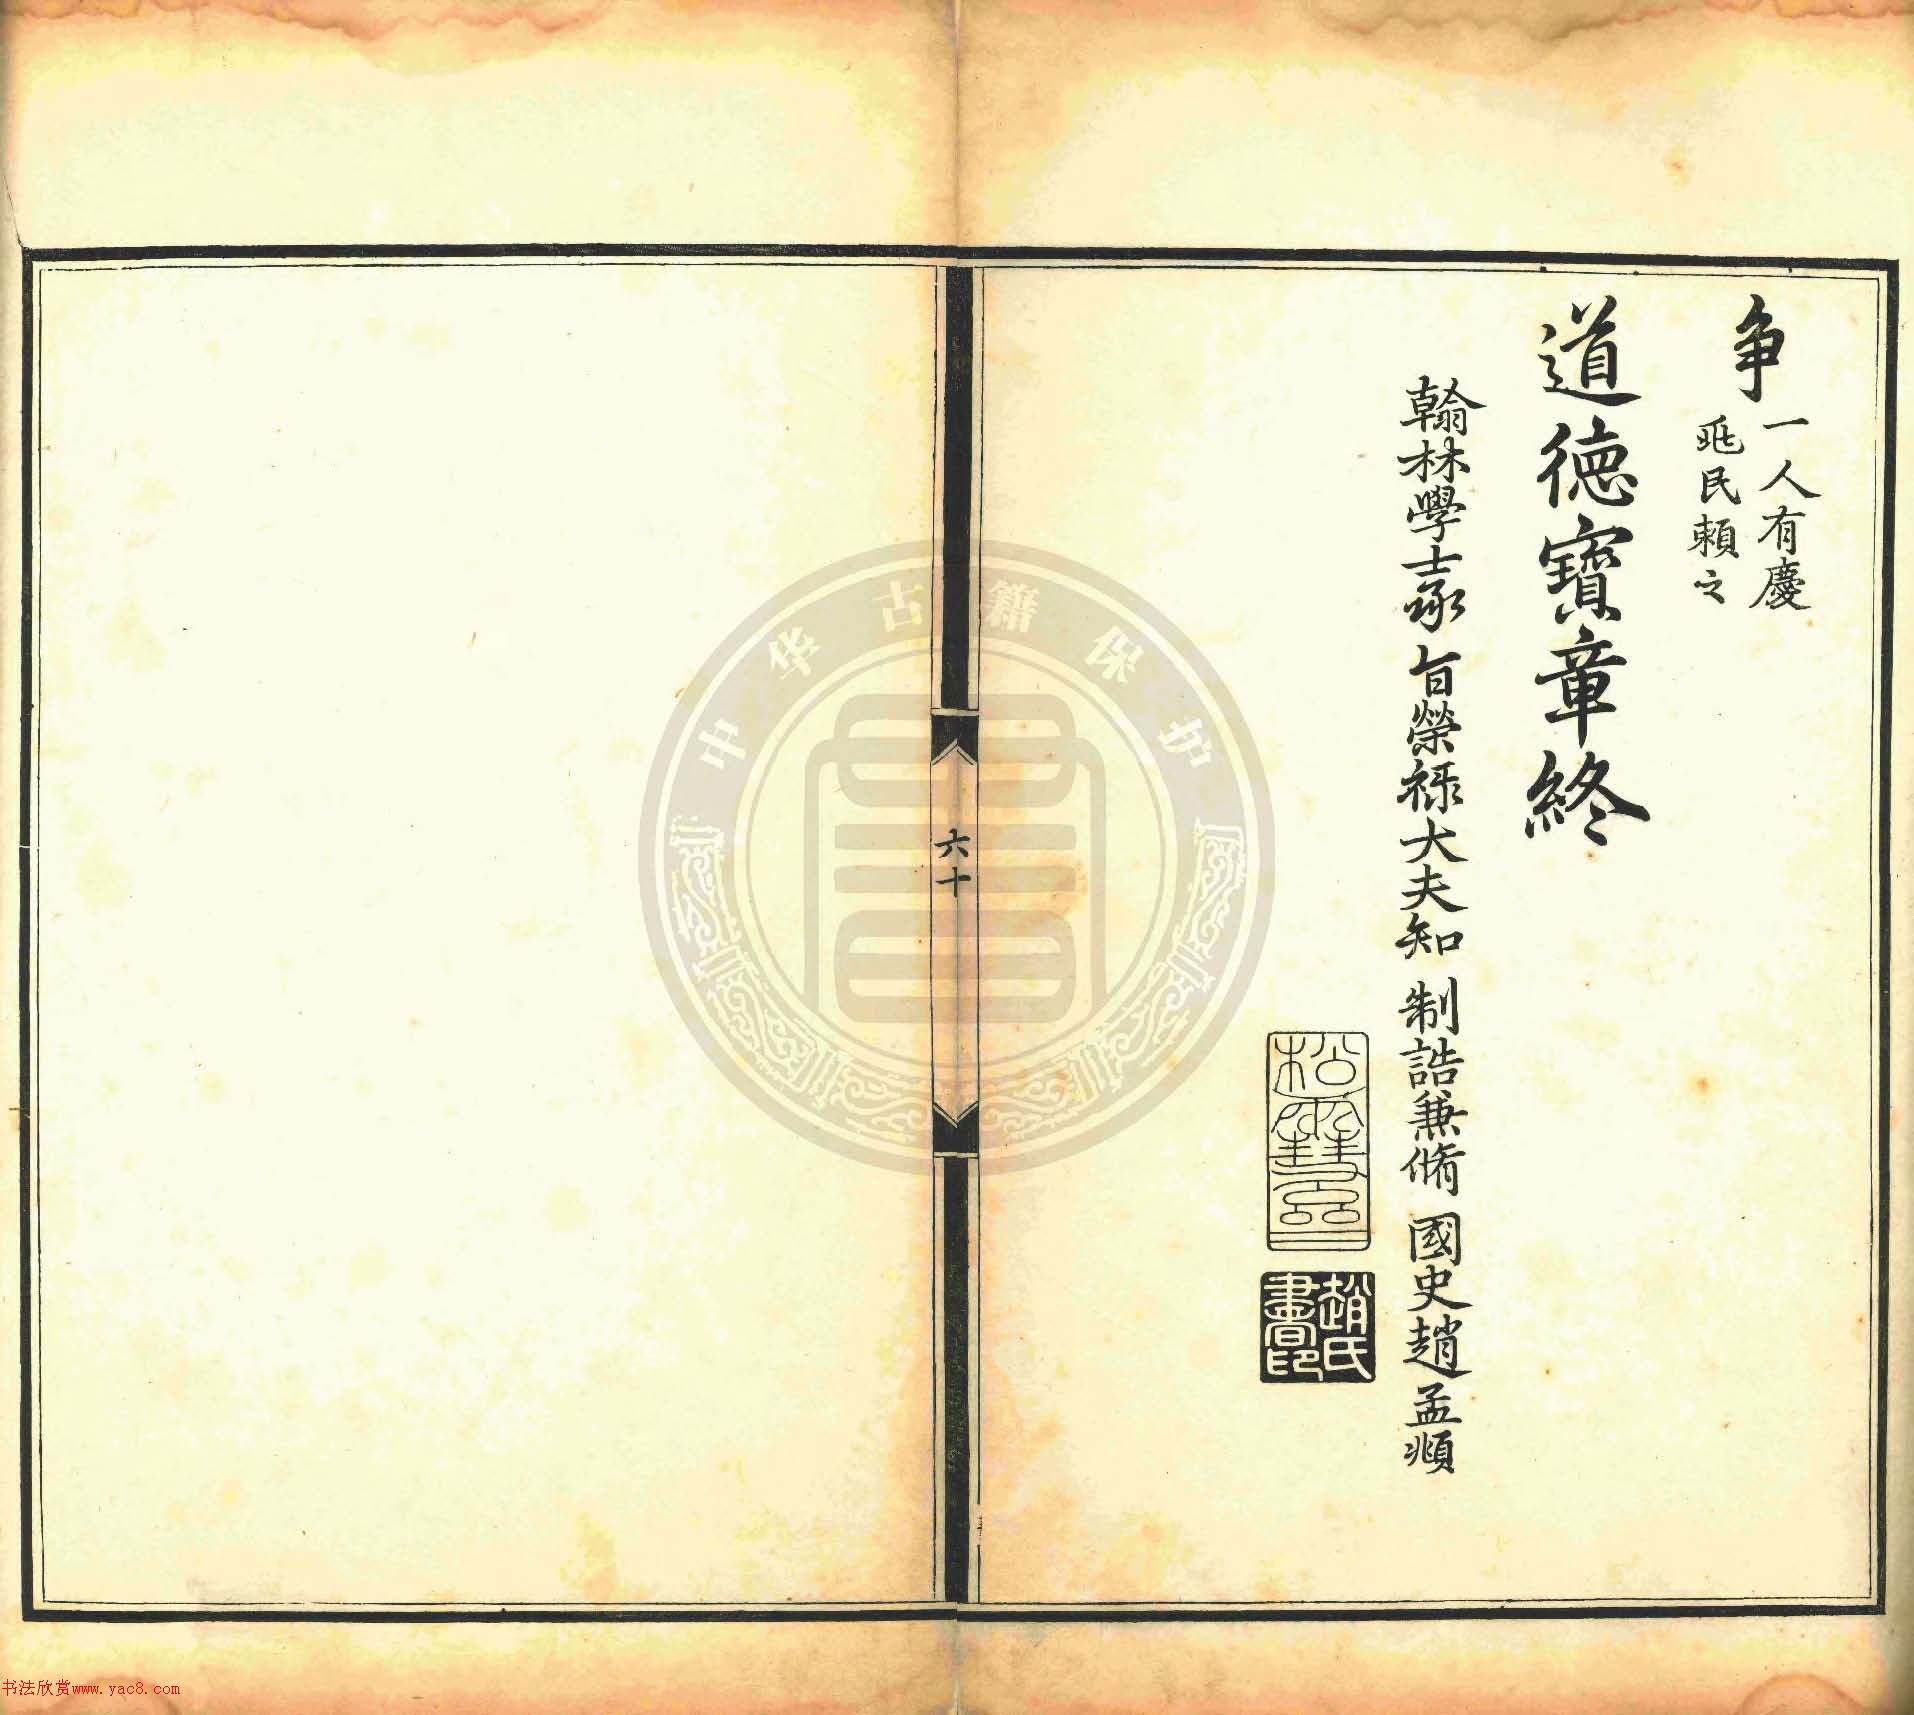 争
一人有慶
兆民頼之
道德寶章終
翰林學士承 旨榮禄大夫知 制誥兼脩 國史趙孟頫
松雪齋
趙氏書印
六十
中华古籍保护
书法欣赏www.yac8.com